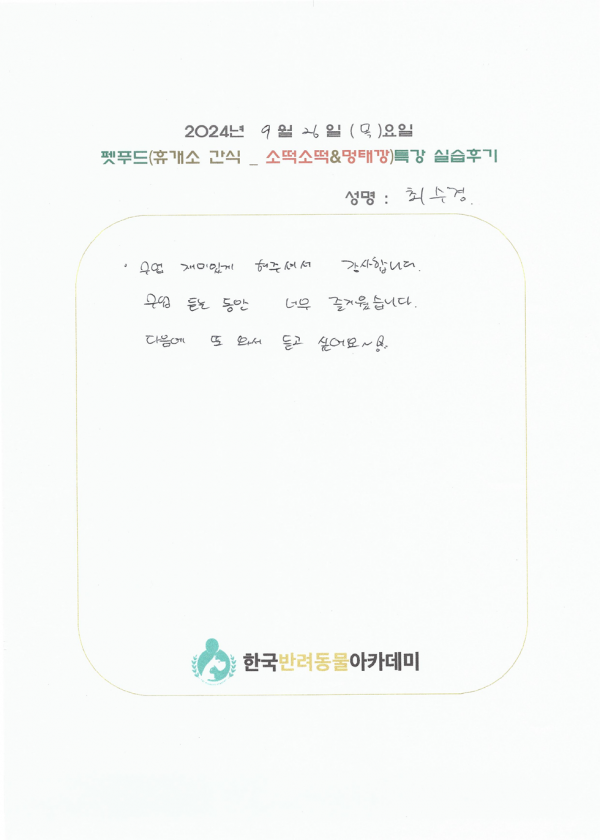 2024년 9월 26일 (목)요일
펫푸드(휴개소 간식 _ 소떡소떡&멍태깡)특강 실습후기
성명 : 최수경.
· 수업 재미있게 해주셔서 감사합니다.
수업 듣는 동안 너무 즐거웠습니다.
다음에 또 와서 듣고 싶어요~
한국반려동물아카데미